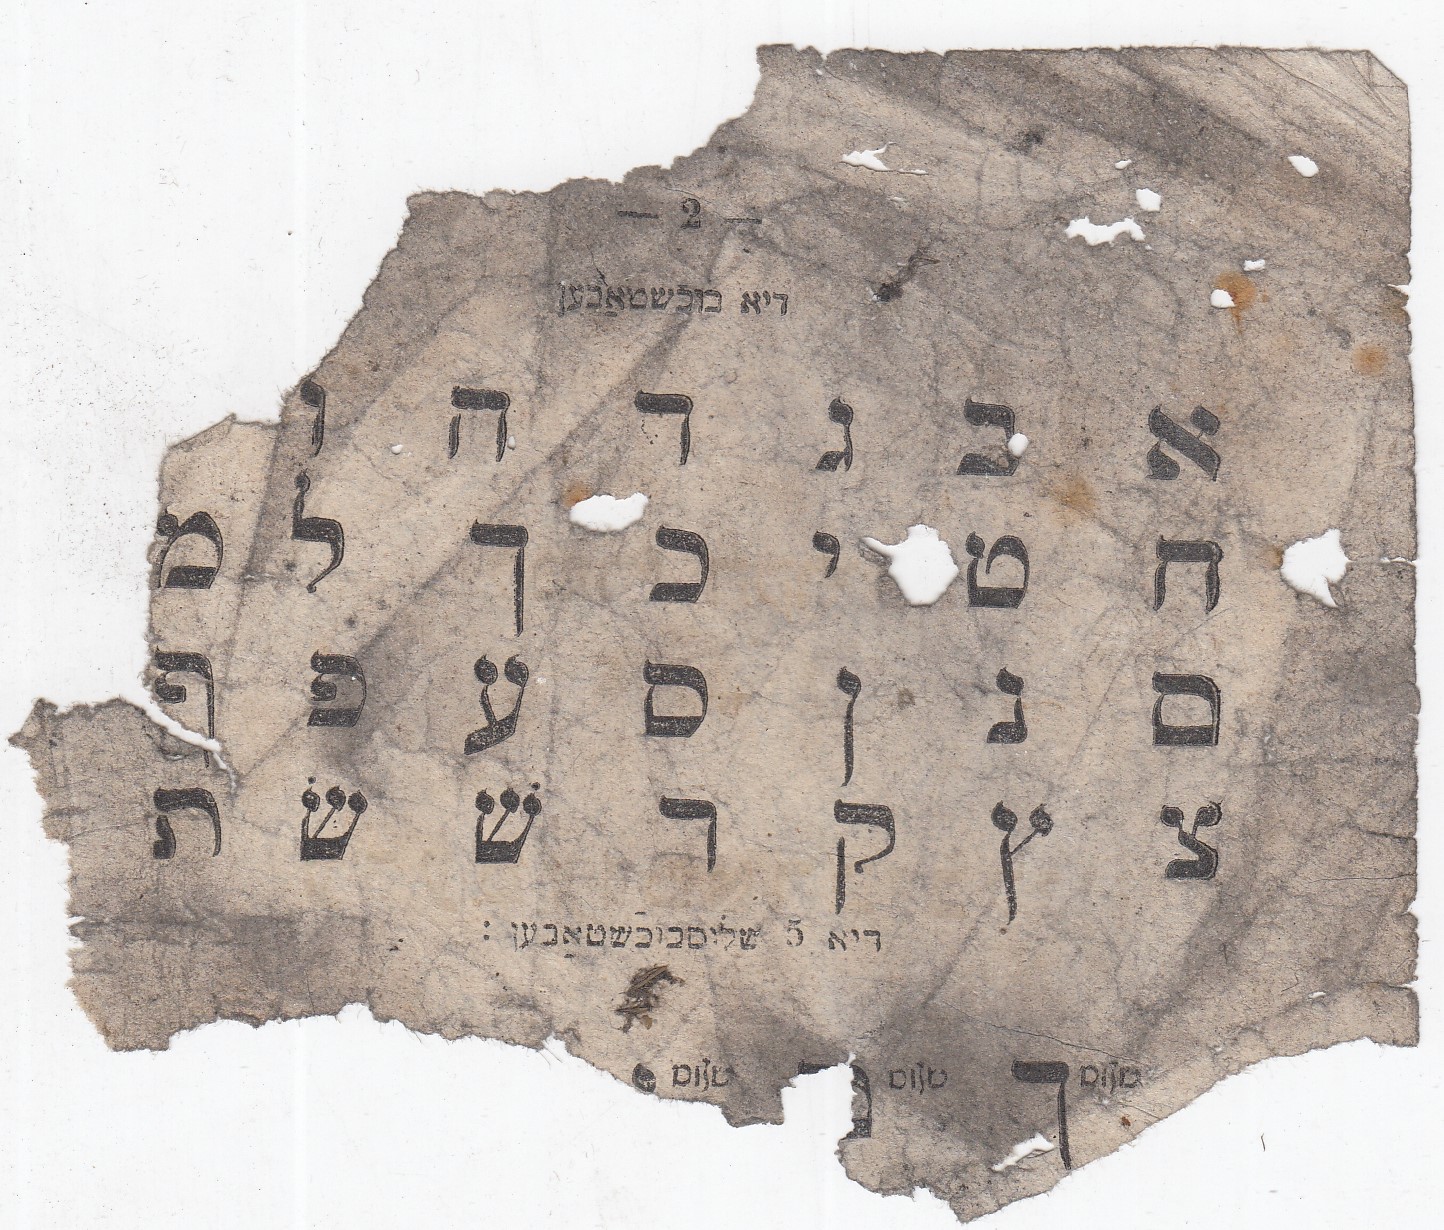 — 2 —
דיא בוכֿשטאַבען
א ב ג ד ה ו
ח ט י כ ך ל מ
ם נ ן ס ע פ ף
צ ץ ק ר שׁ שׂ ת
דיא 5 שליסבוכֿשטאַבען :
שלוס ך שלוס שלוס